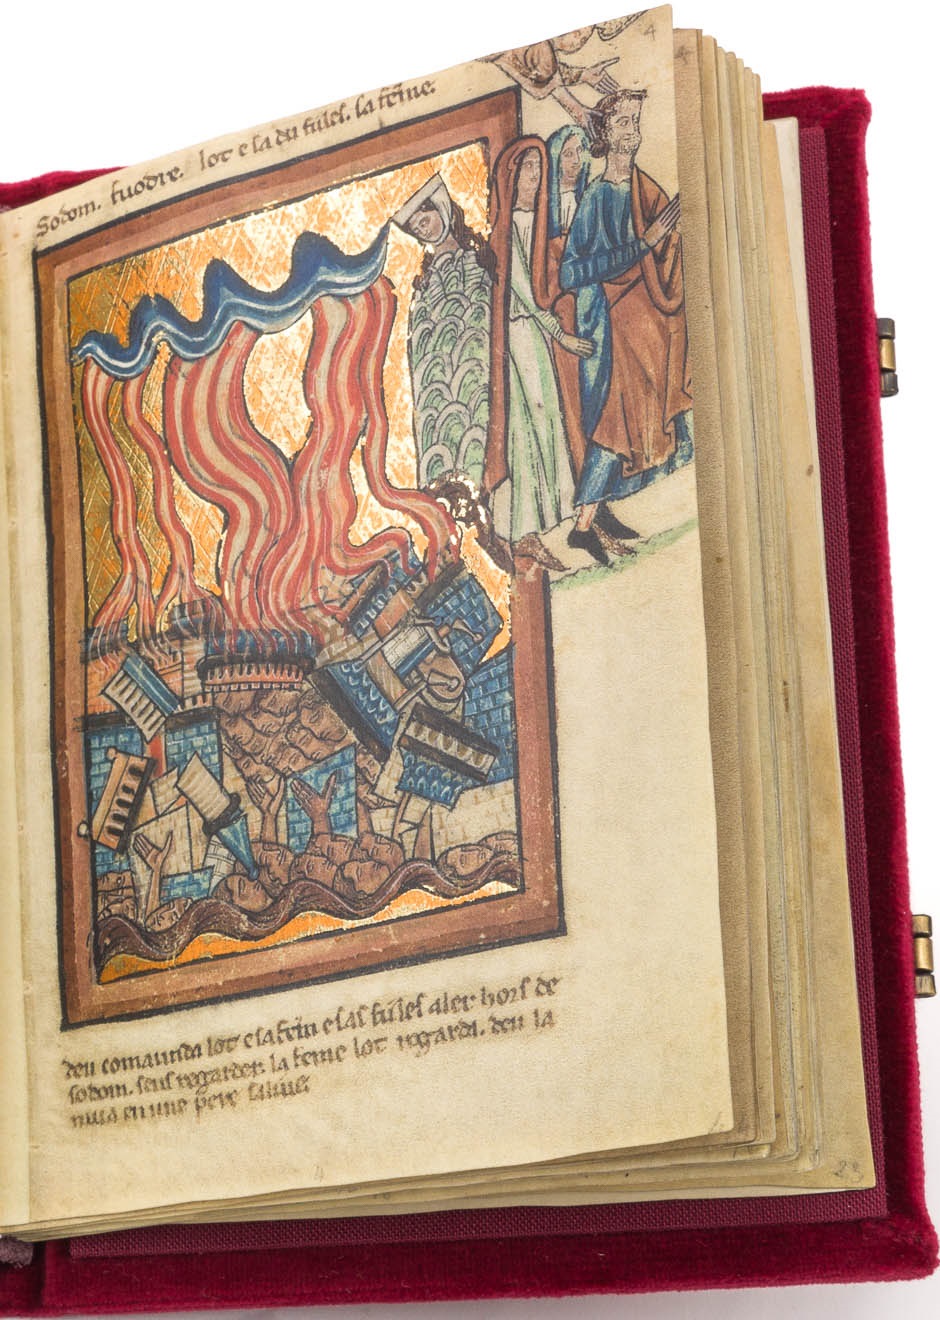 4
4
Sodom. fuodre. lot e sa du fiiles. la feme.
deu comaunda lot e sa fem e sas fiiles aler hors de
sodom. sens regarder. la feme lot regardi. deu la
mua en une pere
23